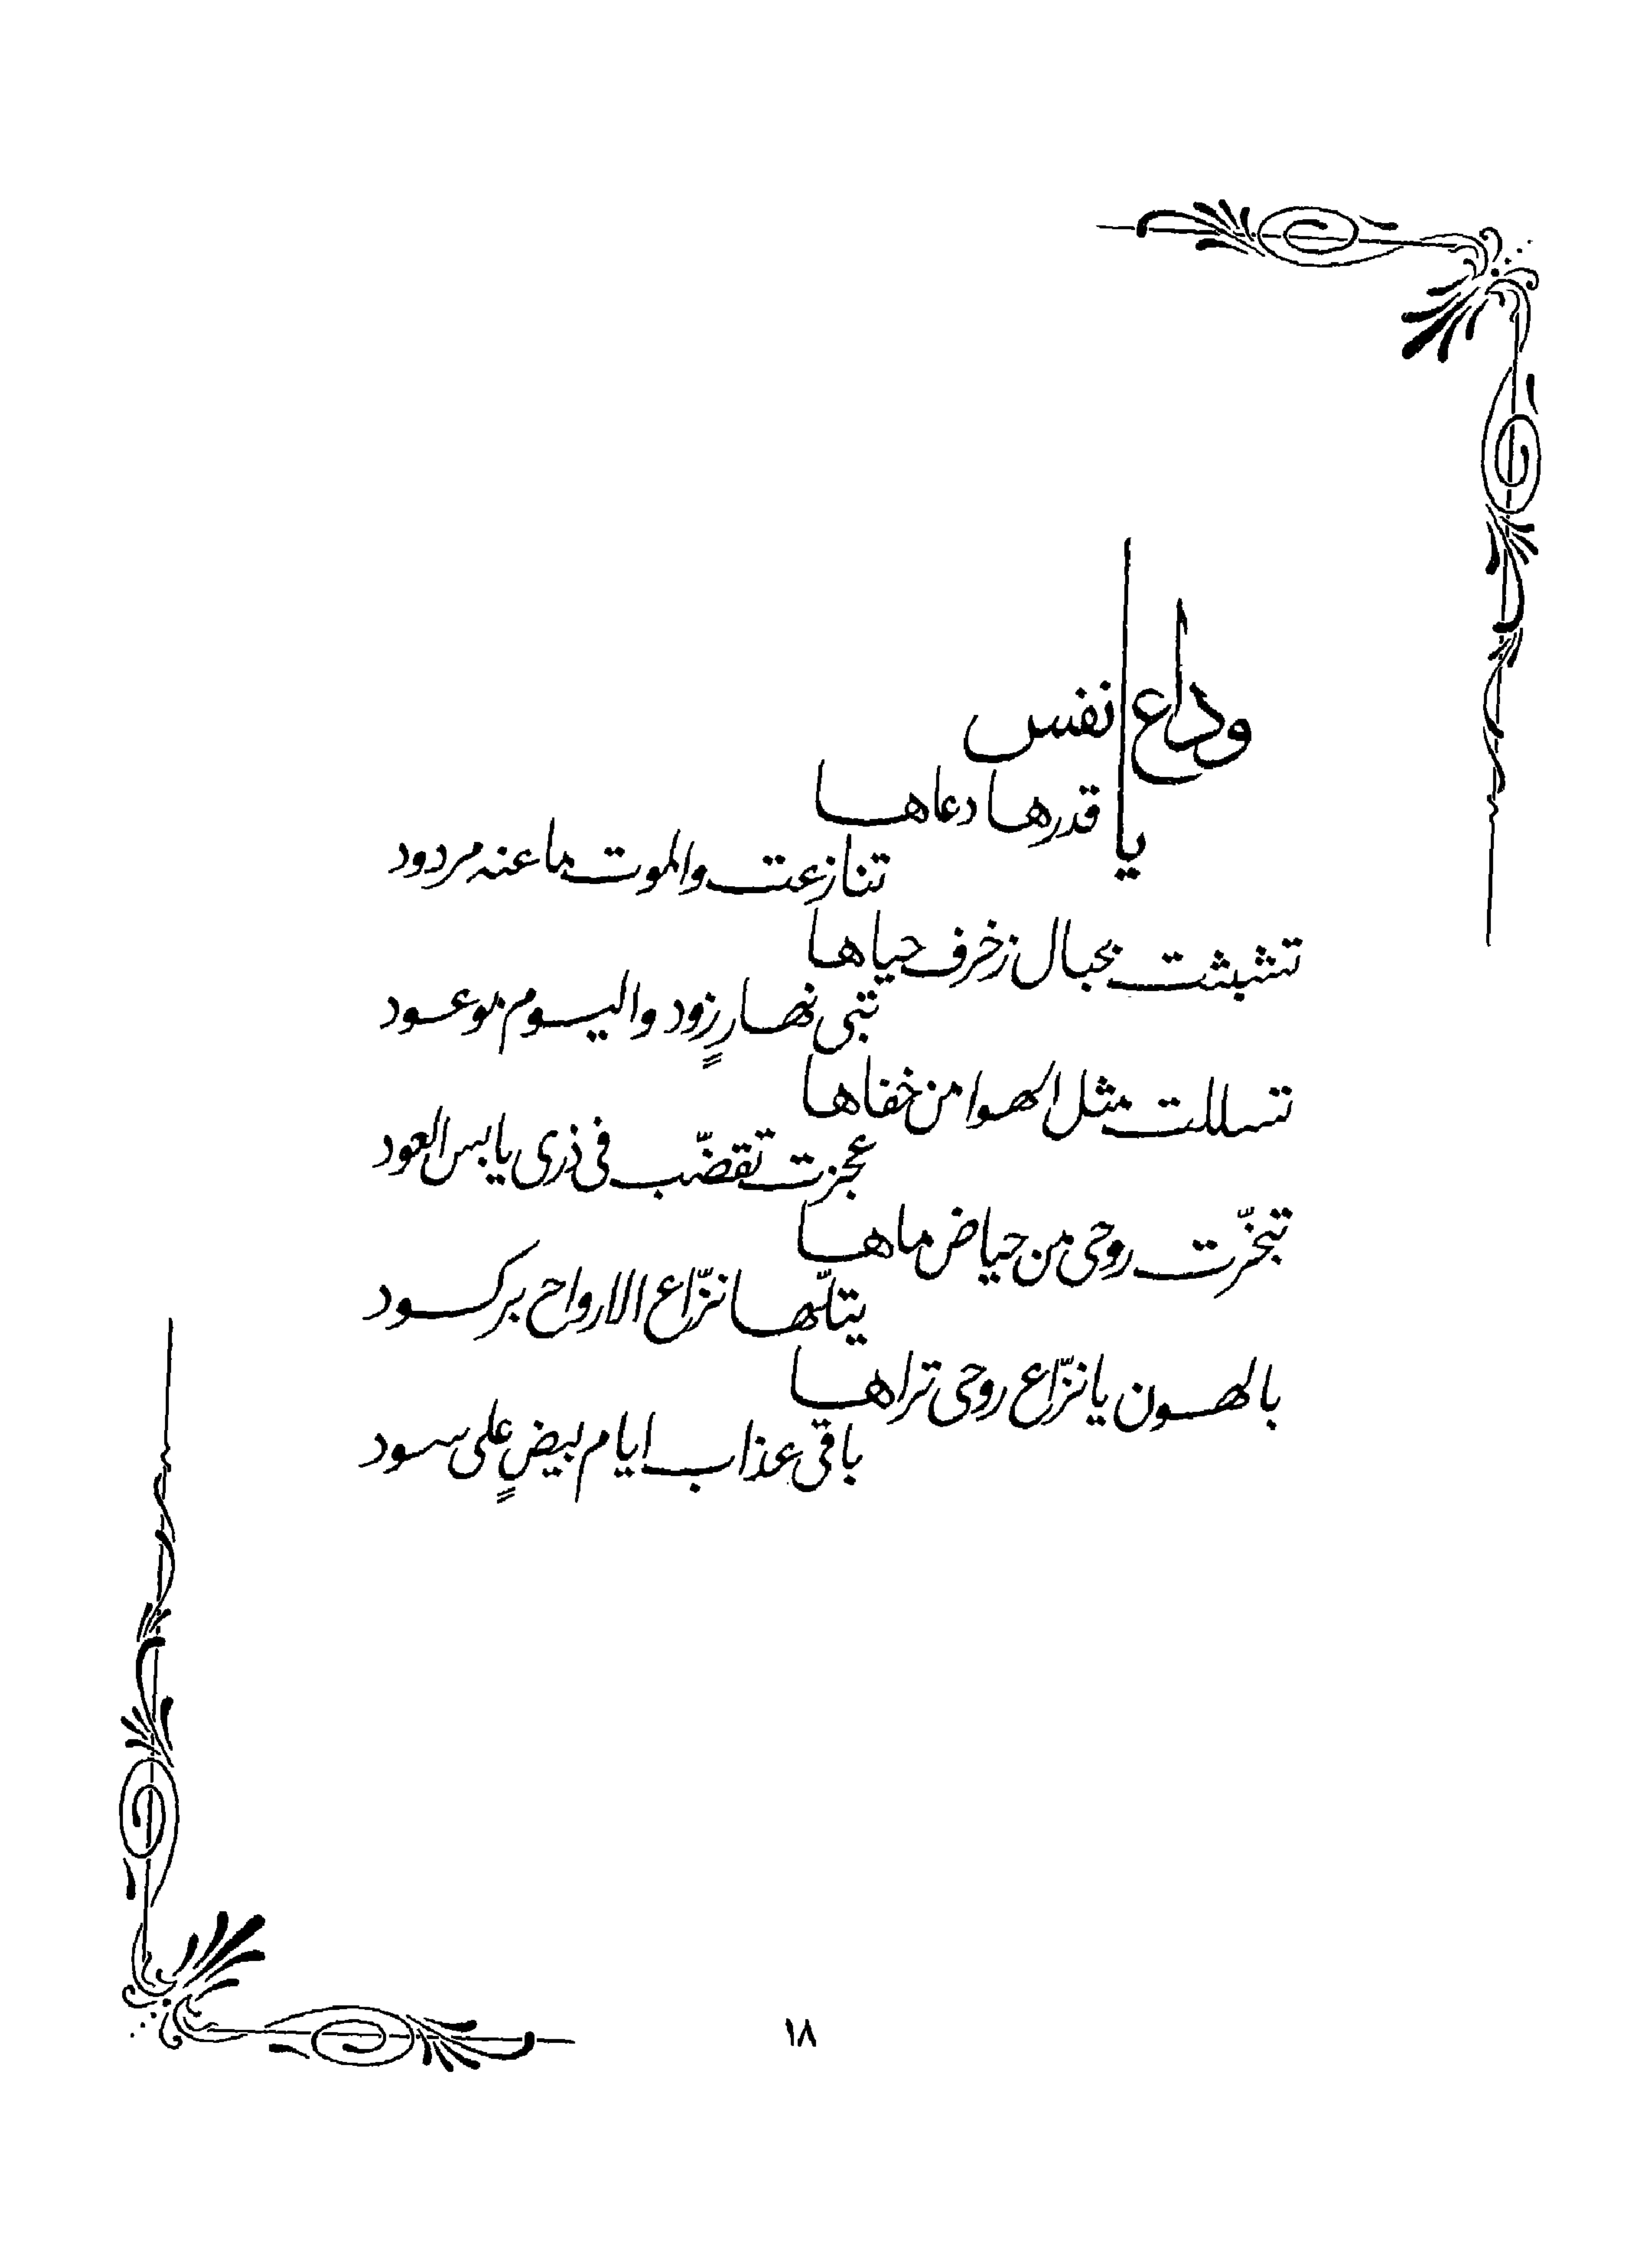 وداع يا نفس
قدرها دعاها
تنازعت والموت ما عنه مردود
تشبثت بحبال زخرف حياها
تبي نهارٍ زود واليوم موعود
تسللت مثل الهوا من خفاها
عجزت تقضّب في ذرى يابس العود
تبخّرت روحي من حياض ماها
يتلّها نزّاع الارواح بركود
بالهون يا نزّاع روحي تراها
باقي عذاب ايام بيضٍ على سود
١٨